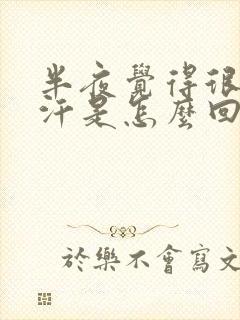 半夜覺得很
汗是怎麼回
於樂不會寫文